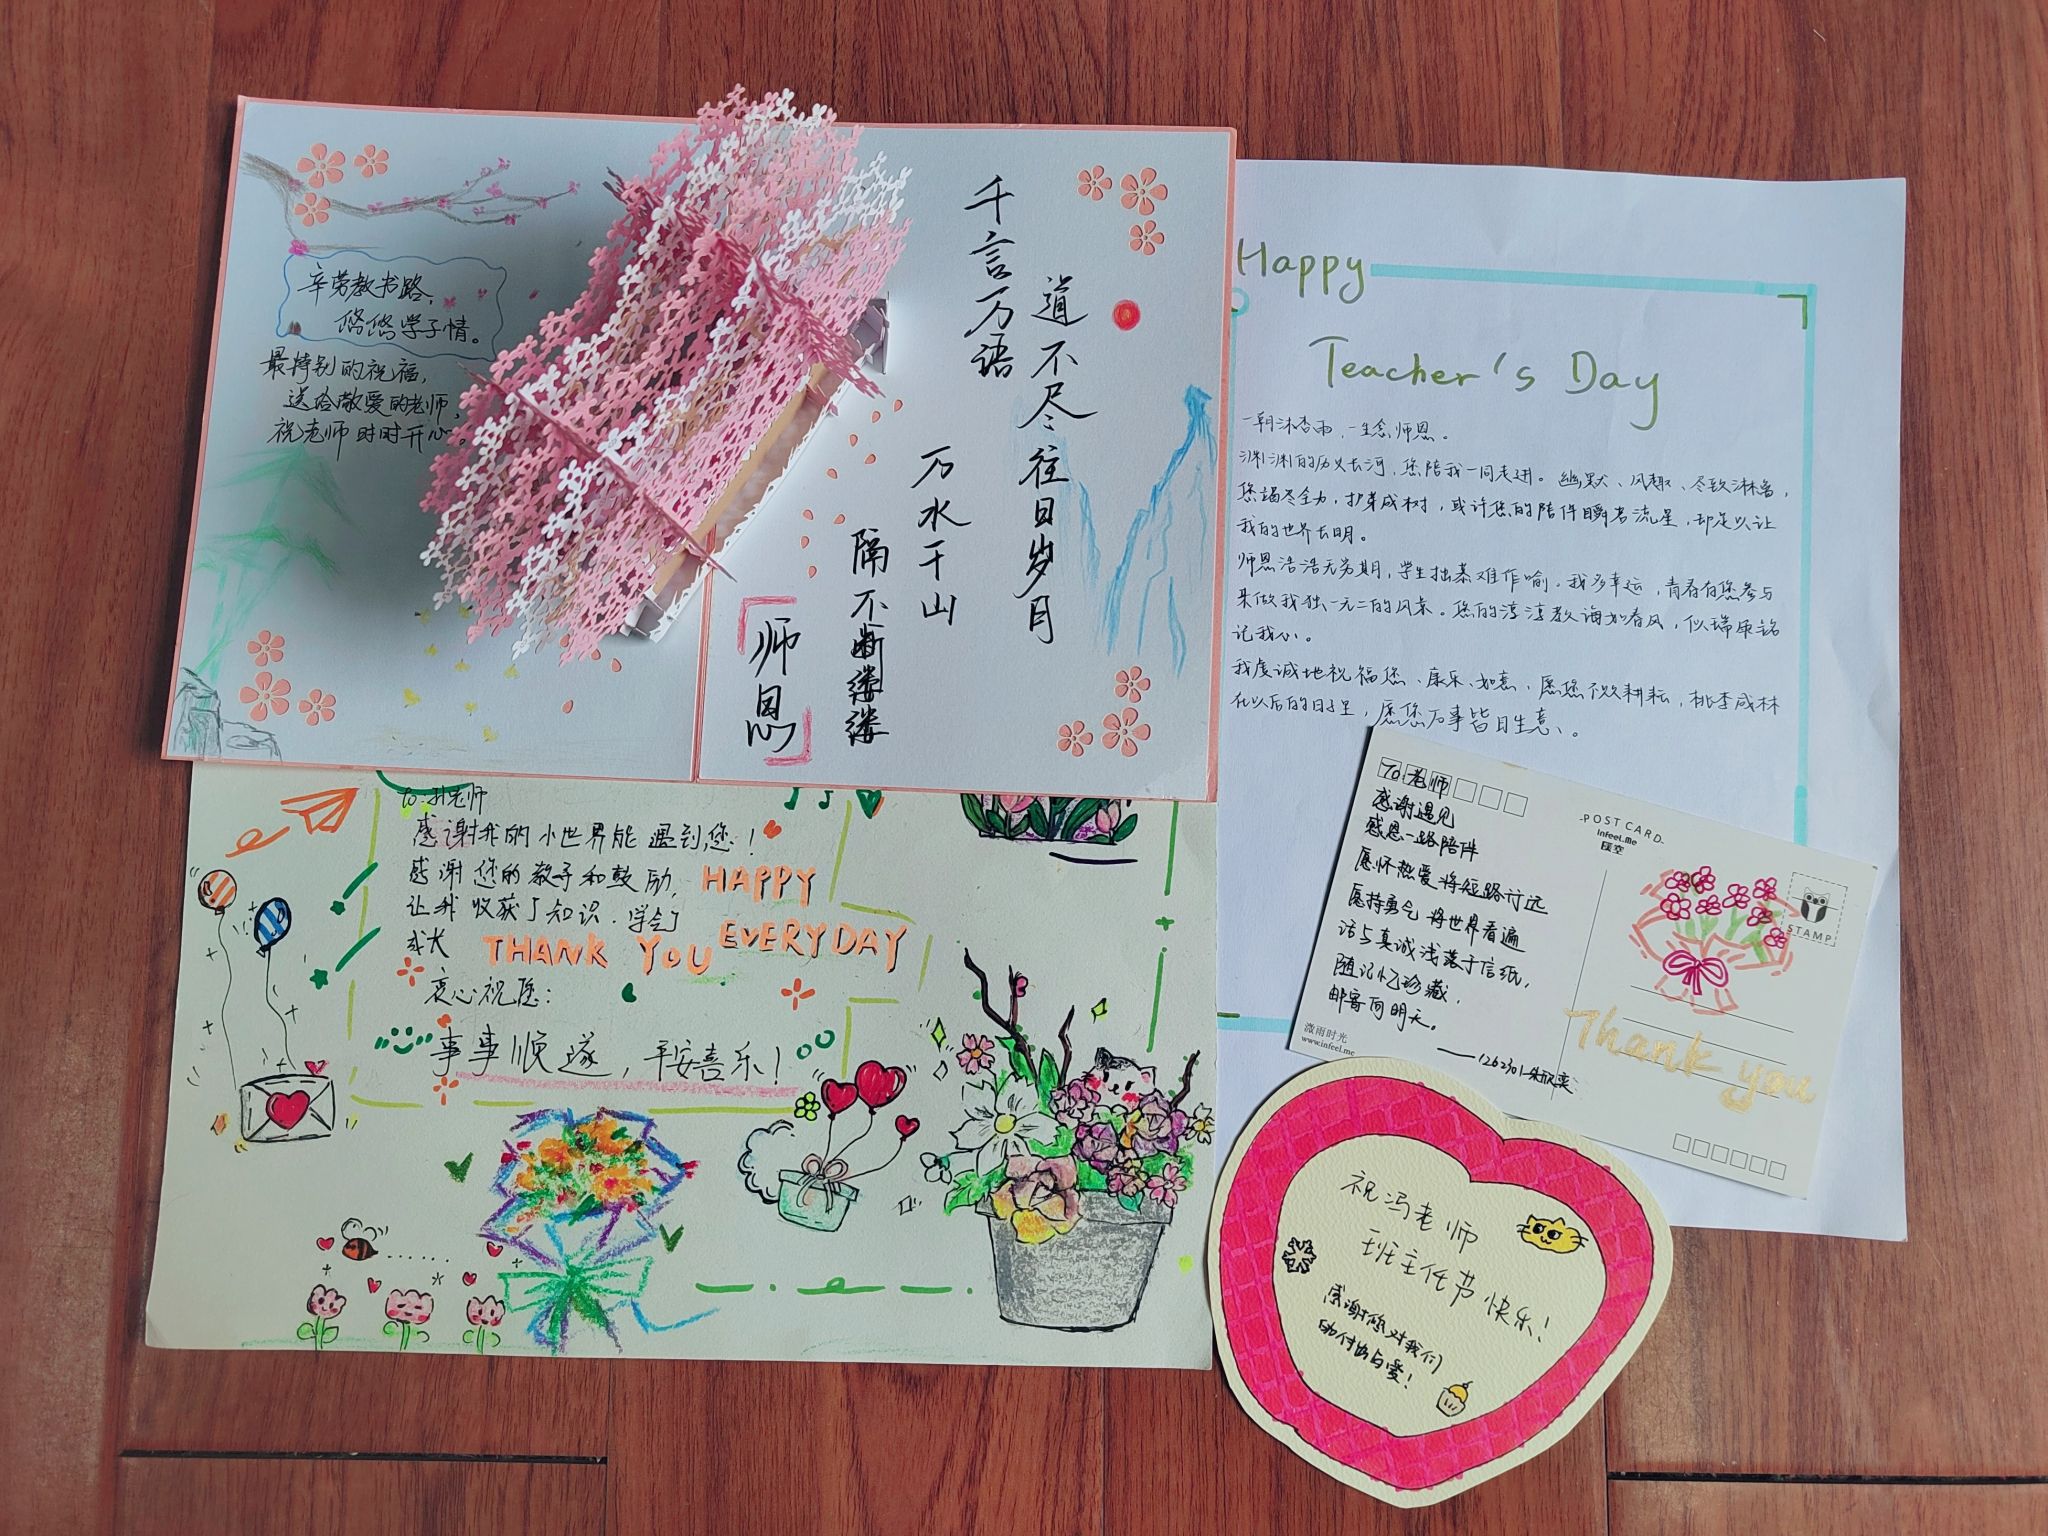 辛劳教书路，
悠悠学子情。
最特别的祝福，
送给敬爱的老师，
祝老师时时开心。
千言万语
道不尽往日岁月
万水千山
隔不断缕缕
「师恩」
Happy
Teacher's Day
一朝沐杏雨，一生念师恩。
渊渊的历史长河，您陪我一同走进。幽默、风趣、尽致淋漓，
您竭尽全力，护芽成树，或许您的陪伴瞬若流星，却足以让
我的世界长明。
师恩浩浩无穷期，学生拙慕难作喻。我多幸运，青春有您参与
来做我独一无二的风景。您的淳淳教诲如春风，似瑞康铭
记我心。
我虔诚地祝福您、康乐、如意、愿您不效耕耘，桃李成林
在以后的日子里，愿您万事皆目生意、。
To:孙老师
感谢我的小世界能遇到您！
感谢您的教予和鼓励，
让我收获了知识.学会了
成长
HAPPY
EVERYDAY
THANK YOU
衷心祝愿：
事事顺遂，平安喜乐！
To 老师
感谢遇见
感恩一路陪伴
愿怀热爱将短路行远
愿持勇气将世界看遍
话与真诚浅落于信纸，
随记忆珍藏，
邮寄向明天。
——1262301
POST CARD
infeel.me
STAMP
Thank you
微雨时光
www.infeel.me
祝冯老师
班主任节快乐！
感谢您对我们
的付出与爱！